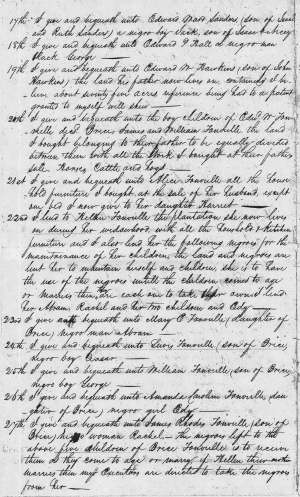 17th I give and bequeath unto Edward Sanders (son of
and Ruth Sanders) a negro boy Jack, son of
18th I give and bequeath unto Edward F Hall a negro man
black George
19th I give and bequeath unto Edward W Hawkins (son of John
Hawkins) the land his father now lives on containing
about seventy five acres reference being had to a patent
granted to myself will shew
20th I give and bequeath unto the boy children of Edw. W. Fon
ville dec'd Brice, James and William Fonville the land
I bought belonging to their father to be equally divided
between them with all the Stock I bought at their father
sale Horses Cattle and hogs
21st I give and bequeath unto Hellen Fonville all the House
hold furniture I bought at the sale of her Husband, except
one bed I now give to her daughter Harriet
22nd I lend to Hellen Fonville the plantation she now lives
on during her widowhood with all the Household & Kitchen
furniture and I also lend her the following negroes for the
maintainance of her children, the land and negroes are
lent her to maintain herself and children, she is to have
the use of the negroes untill the children comes to age
or marries then are each one to take their owned
her Abram, Rachel and her two children and Edy
23rd I give and bequeath unto Mary C Fonville (daughter of
Brice) negro man Abram
24th I give and bequeath unto Fonville (son of Brice)
negro boy Ceasar
25th I give and bequeath unto William Fonville (son of Brice)
negro boy George
26th I give and bequeath unto Amanda Caroline Fonville, dau
ghter of Brice, negro girl Edy
27th I give and bequeath unto James Rhodes Fonville (son of
Brice) negro woman Rachel — The negroes left to the
above five Children of Brice Fonville is to receive
them as they come to age or marry if Hellen their mother
marries then my Executors are directed to take the negroes
from her